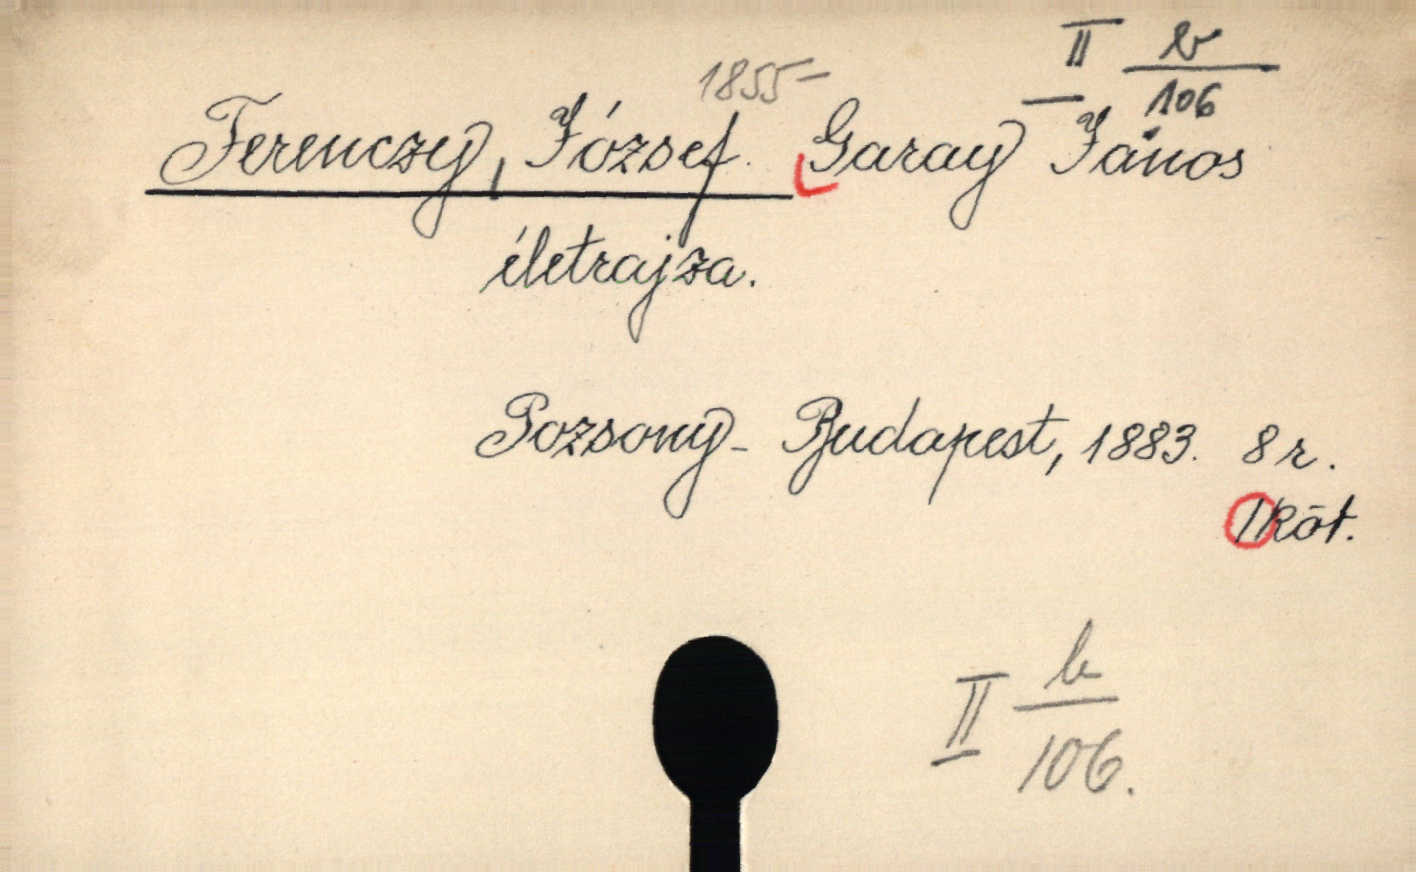 II b/106
1855-
Ferenczy, József. Garay János
életrajza.
Pozsony- Budapest, 1883. 8 r.
1 köt.
II b/106.